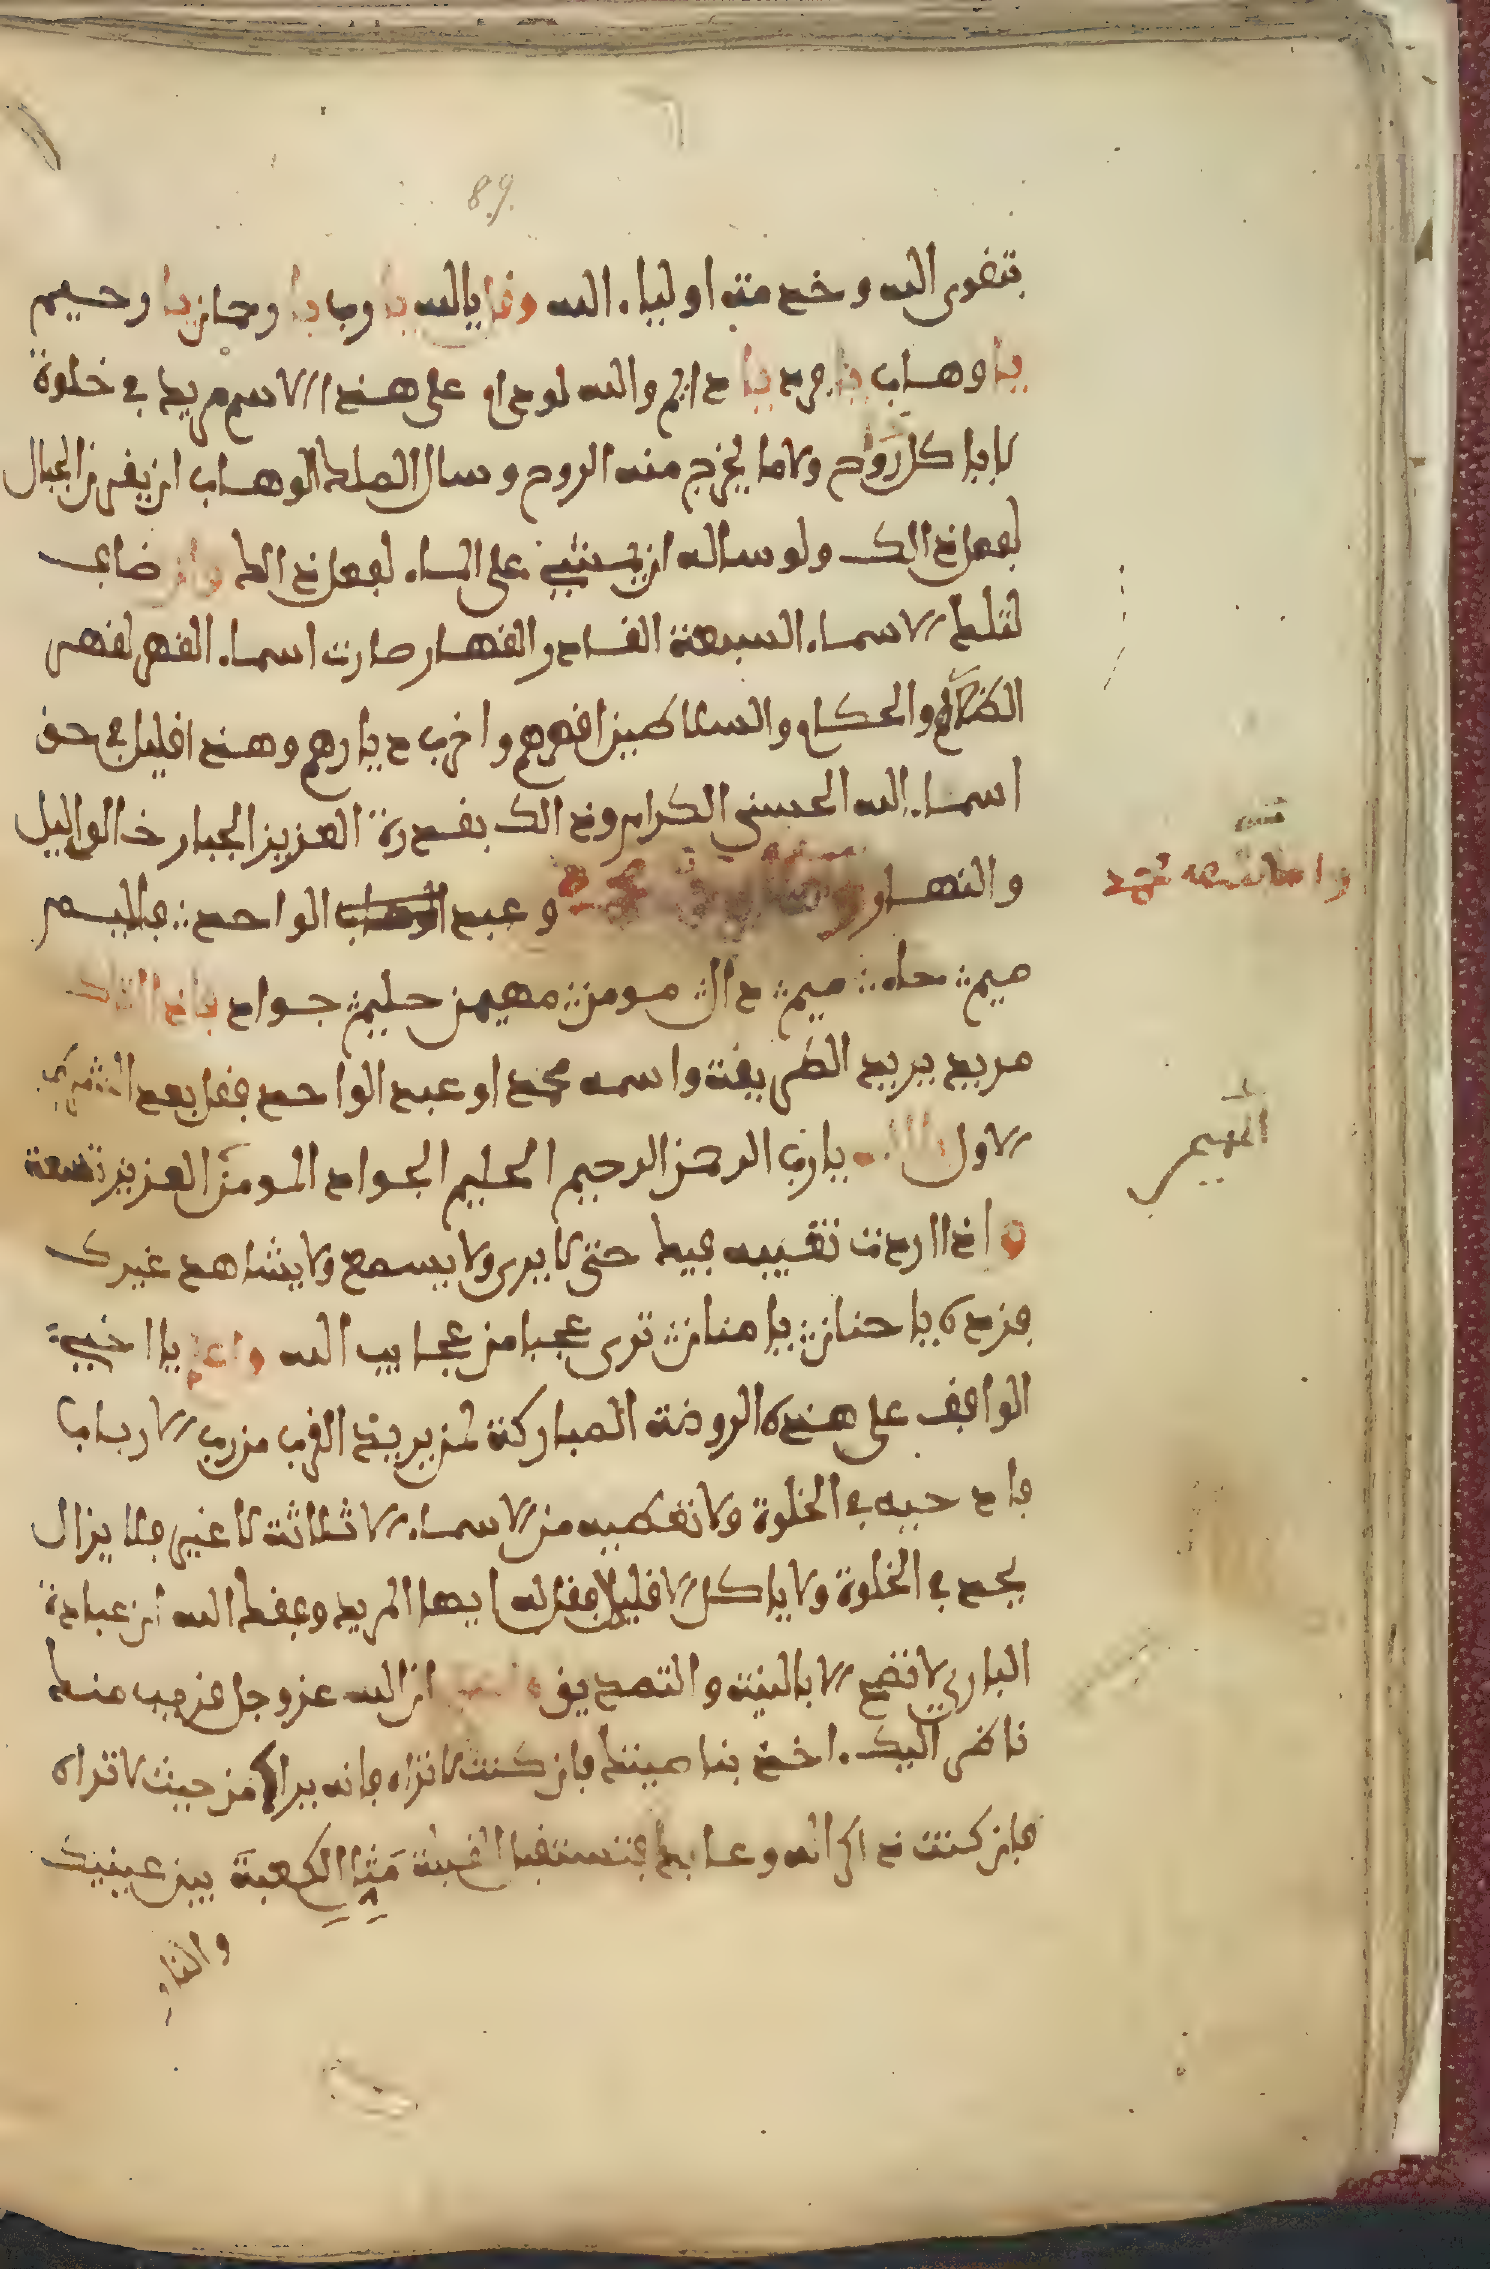 89
بتقوى الله وخدمته اولياء الله وقل يالله يا رب يا رحمان يا رحيم
يا وهاب يا فرد يا دايم والله لو دام على هذا الاسم مريد في خلوة
لا ياكل رواح ولا ما يخرج منه الروح وسال الملك الوهاب ان يقهر الجبال
لفعل ذالك ولو ساله ان يمشي على الماء لفعل ذالك وان ضاف
لتلك الاسماء السبعة القادر والقهار صارت اسماء القهر لقهر
الظلام والحكام والسلاطين اقهرهم واخرب ديارهم وهذا قليل في حق
اسماء الله الحسنى الكرام وذالك بقدرة العزيز الجبار خالق اليل
والنهار وعبد الواحد فالميم
ميم حاء ميم دال مومن مهيمن حليم جواد فاذا اتاك
مريد يريد الطريقة واسمه محمد او عبد الواحد فقل بعد
الاول الله يا رب الرحمن الرحيم الحليم الجواد المومن العزيز تسعة
اذا اردت تغيبه فيك حتى لا يرى ولا يسمع ولا يشاهد غيرك
فزده يا حنان يا منان ترى عجبا من عجايب الله واعلم يا اخي
الواقف على هذه الروضة المباركة لمن يريد القرب من رب الارباب
فادخله في الخلوة ولا تعطيه من الاسماء الا ثلاثة لا غير فلا يزال
يجد في الخلوة ولا ياكل الا قليلا فقل له ايها المريد وفقك الله ان عبادة
الباري لا تصح الا بالنية والتصديق واعلم ان الله عز وجل قريب منك
ناظر اليك اخذ بناصيتك فان كنت لا تراه فانه يراك من حيث لا تراه
فان كنت ذاكر الله وعابده فتستقبل القبلة مثل الكعبة بين عينيك
والنار
المهيمن